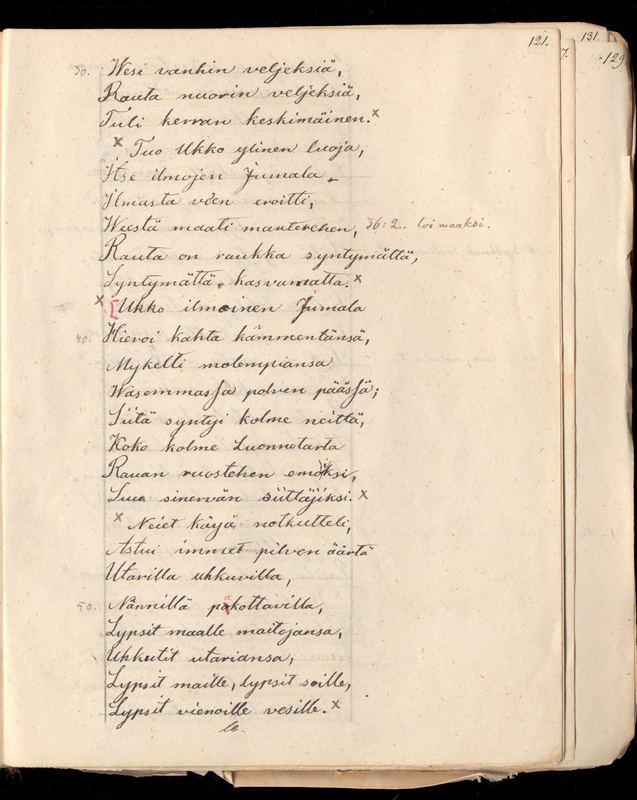 121.
131.
7.
129
30. Wesi vanhin veljeksiä,
Rauta nuorin veljeksiä,
Tuli kerran keskimäinen. x
x Tuo Ukko ylinen luoja,
Itse ilmojen Jumala
Ilmasta ve'en eroitti,
Weestä maati manterehen, 36:2. loi maaksi.
Rauta on raukka syntymättä,
Syntymättä, kasvamatta. x
x [Ukko ilmoinen Jumala
40. Hieroi kahta kämmentänsä,
Mykelti molempiansa
Wasemmassa polven päässä;
Siitä syntyi kolme neittä,
Koko kolme Luonnotarta
Rauan ruostehen emoiksi,
Suu sinervän siittäjiksi. x
x Neiet käyä notkutteli,
Astui immet pilven äärtä
Utarilla uhkuvilla,
50. Nännillä pakottavilla,
Lypsit maalle maitojansa,
Uhkutit utariansa,
Lypsit maille, lypsit soille,
Lypsit vienoille vesille. x
le.